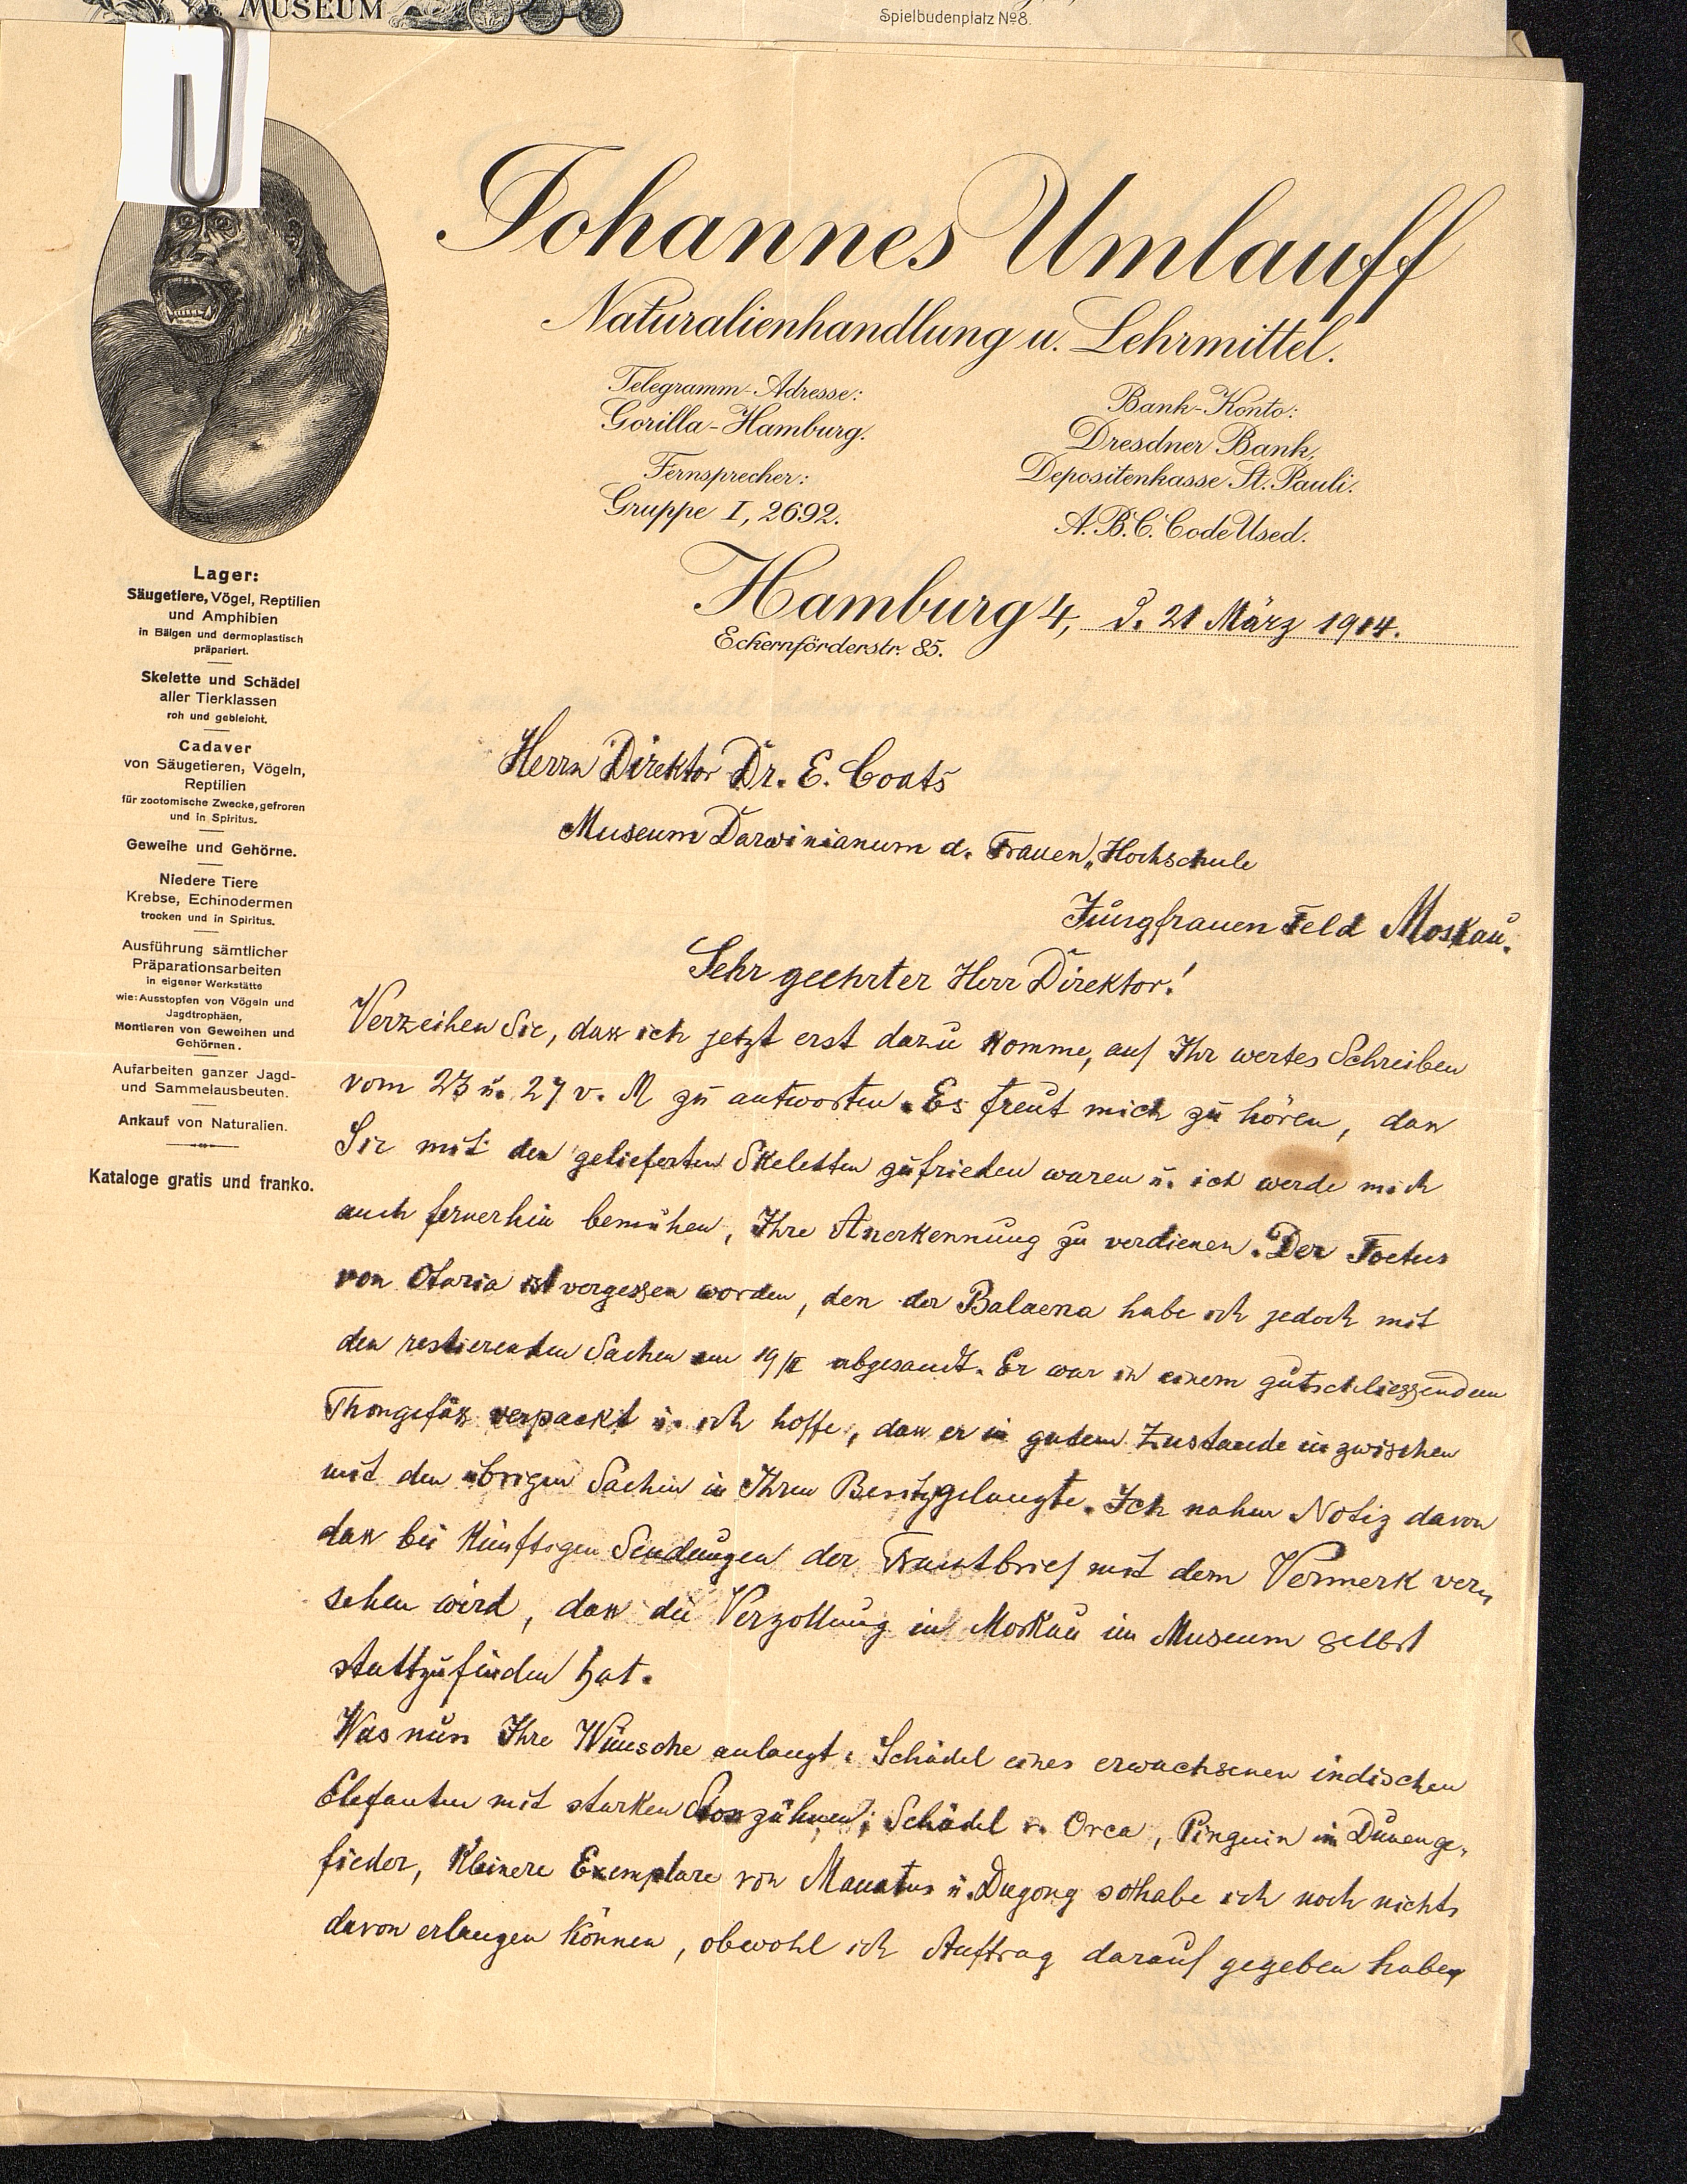 MUSEUM
Spielbudenplatz No8.
Johannes Umlauff
Naturalienhandlung u. Lehrmittel.
Telegramm-Adresse:
Gorilla-Hamburg.
Fernsprecher:
Gruppe I, 2692.
Bank-Konto:
Dresdner Bank,
Depositenkasse St. Pauli.
A.B.C. Code Used.
Hamburg 4, d. 21 März 1914.
Eckernförderstr. 85.
Lager:
Säugetiere, Vögel, Reptilien
und Amphibien
in Bälgen und dermoplastisch
präpariert.
Skelette und Schädel
aller Tierklassen
roh und gebleicht.
Cadaver
von Säugetieren, Vögeln,
Reptilien
für zootomische Zwecke, gefroren
und in Spiritus.
Geweihe und Gehörne.
Niedere Tiere
Krebse, Echinodermen
trocken und in Spiritus.
Ausführung sämtlicher
Präparationsarbeiten
in eigener Werkstätte
wie: Ausstopfen von Vögeln und
Jagdtrophäen,
Montieren von Geweihen und
Gehörnen.
Aufarbeiten ganzer Jagd-
und Sammelausbeuten.
Ankauf von Naturalien.
Kataloge gratis und franko.
Herrn Direktor Dr. E. Coats
Museum Darwinianum d. Frauen„Hochschule
Jungfrauen Feld Moskau.
Sehr geehrter Herr Direktor!
Verzeihen Sie, dass ich jetzt erst dazu komme, auf Ihr wertes Schreiben
vom 23 u. 27 v. M zu antworten. Es freut mich zu hören, dass
Sie mit den gelieferten Skeletten zufrieden waren u. ich werde mich
auch fernerhin bemühen, Ihre Anerkennung zu verdienen. Der Foetus
von Otaria ist vergessen worden, den der Balaena habe ich jedoch mit
den restierenden Sachen am 19/II abgesandt. Er war in einem gutschliessendem
Thongefäss verpackt u. ich hoffe, dass er in gutem Zustande inzwischen
mit den übrigen Sachen in Ihren Besitz gelangte. Ich nahm Notiz davon
dass bei künftigen Sendungen der Frachtbrief mit dem Vermerk ver„
sehen wird, dass die Verzollung in Moskau im Museum selbst
stattzufinden hat.
Was nun Ihre Wünsche anlangt: Schädel eines erwachsenen indischen
Elefanten mit starken Stosszähnen; Schädel v. Orca, Pinguin in Dunenge„
fieder, kleinere Exemplare von Manatus u. Dugong so habe ich noch nichts
davon erlangen können, obwohl ich Auftrag darauf gegeben habe,